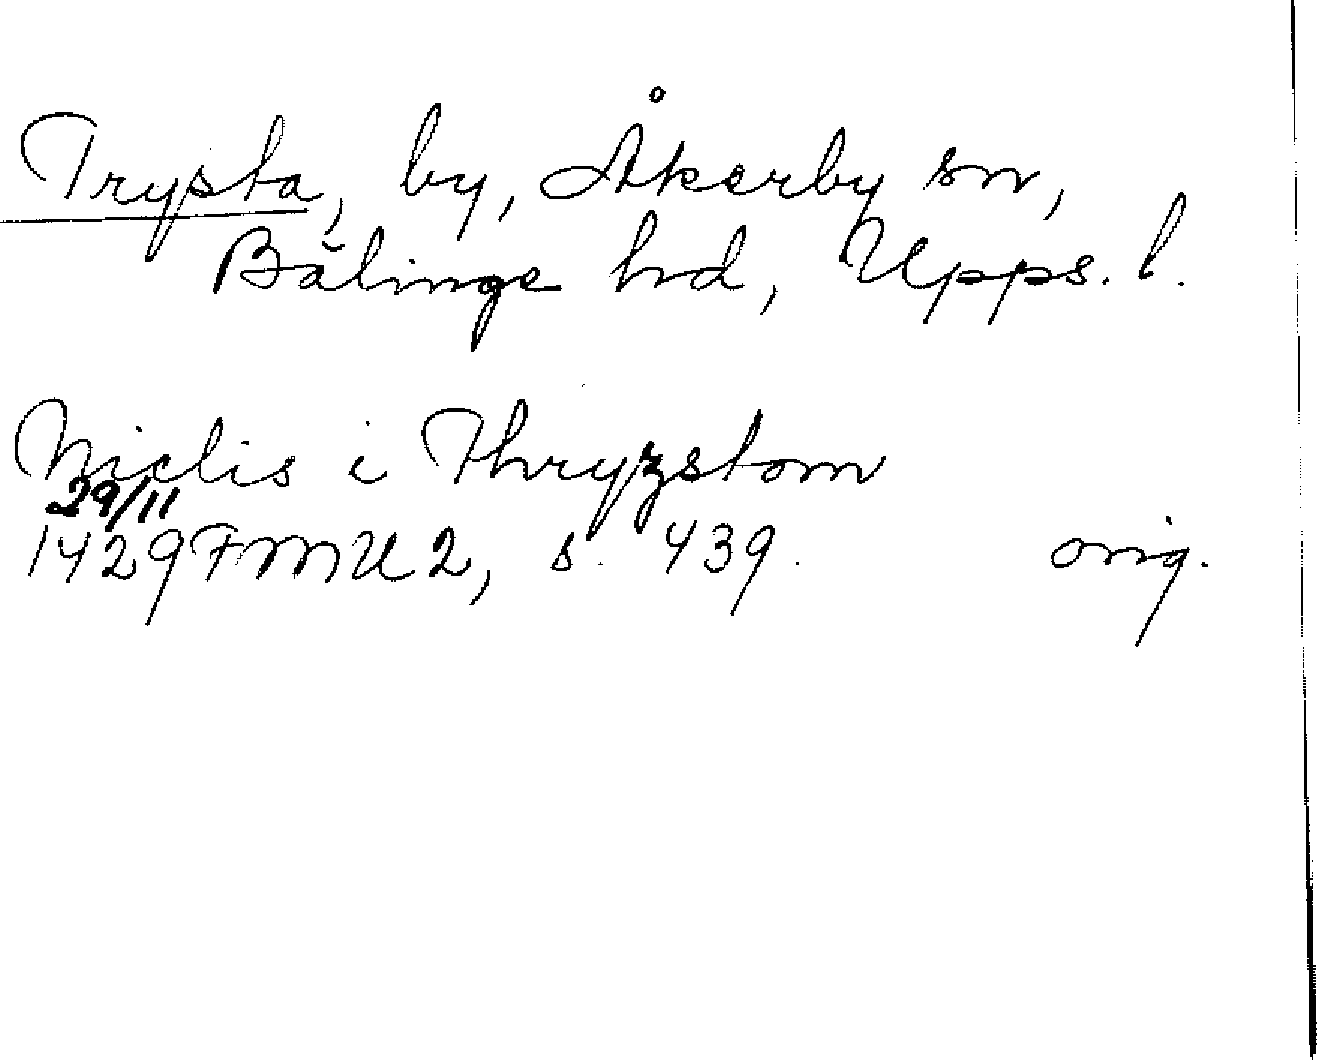 Trysta, by, Åkerby sn,
Bälinge hd, Upps. l.
Niclis i Thryzstom
29/11
1429 FMU 2, s. 439. orig.